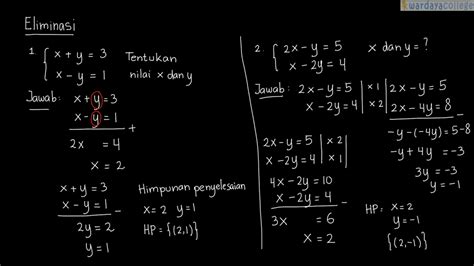 wardayacollege
Eliminasi
1. { x + y = 3
x - y = 1
Tentukan
nilai x dan y
Jawab: x + y = 3
x - y = 1
+
2x = 4
x = 2
x + y = 3
x - y = 1
-
2y = 2
y = 1
Himpunan penyelesaian
x = 2 y = 1
HP = {(2,1)}
2. { 2x - y = 5
x - 2y = 4
x dan y = ?
Jawab: 2x - y = 5 | x 1 | 2x - y = 5
x - 2y = 4 | x 2 | 2x - 4y = 8
-
-y - (-4y) = 5-8
-y + 4y = -3
3y = -3
y = -1
2x - y = 5 | x 2
x - 2y = 4 | x 1
4x - 2y = 10
x - 2y = 4
-
3x = 6
x = 2
HP: x = 2
y = -1
{(2,-1)}